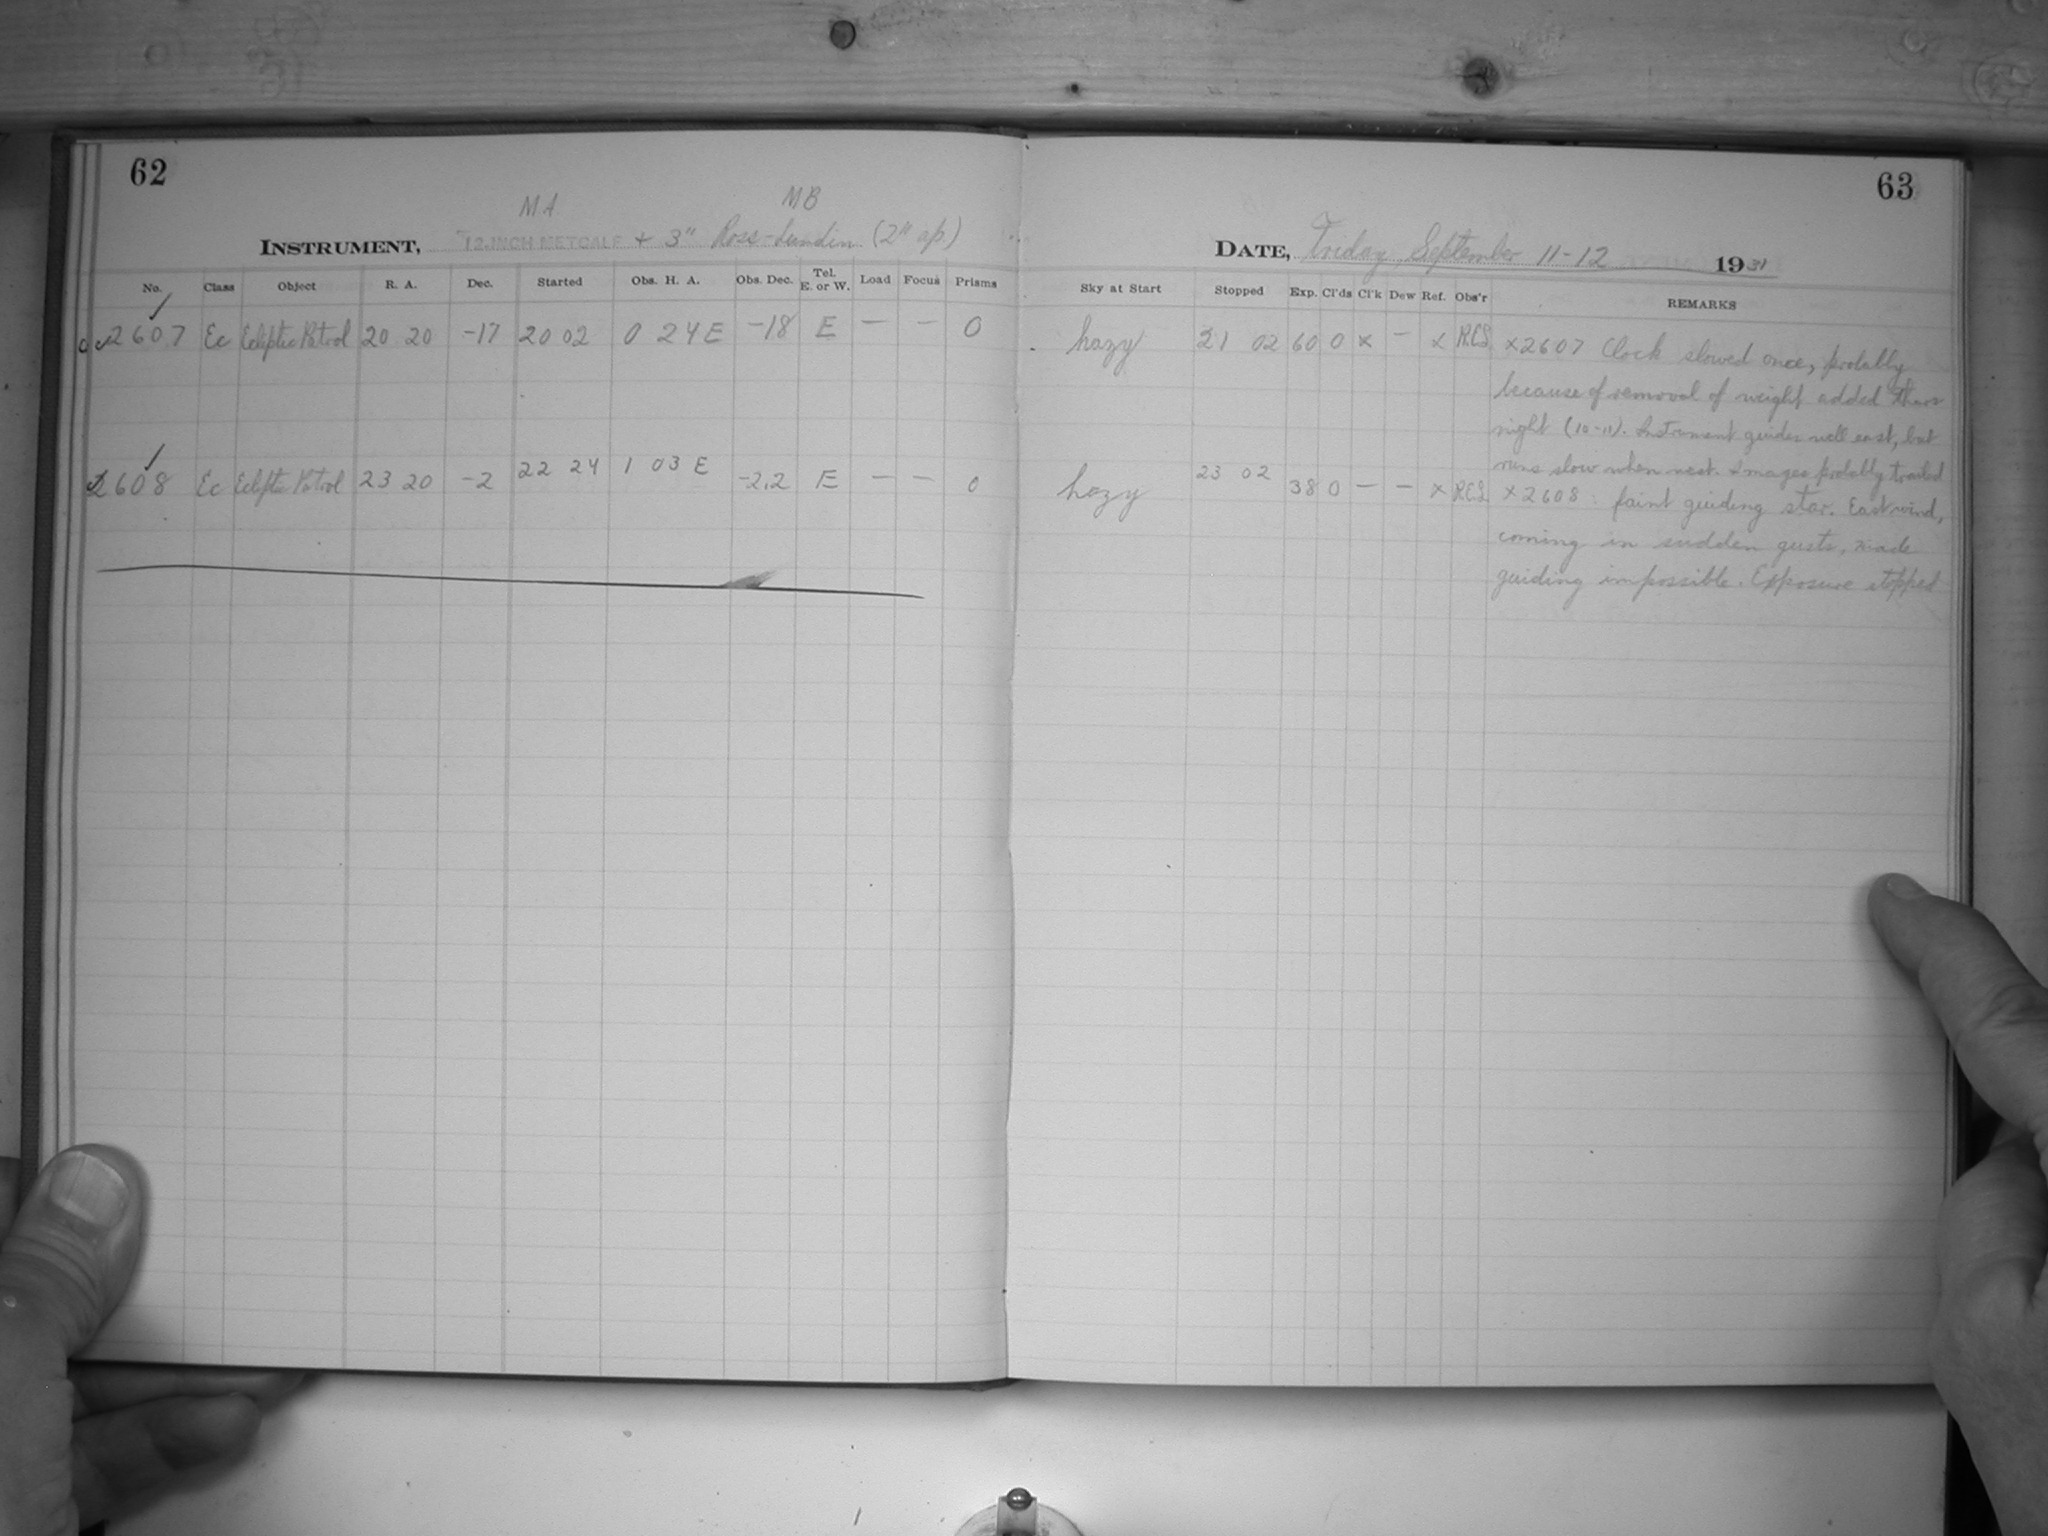 62
MA MB
INSTRUMENT, 12-INCH METCALF + 3" Ross-Lundin (2" ap.)
No. Class Object R. A. Dec. Started Obs. H. A. Obs. Dec. Tel. E. or W. Load Focus Prisms
2607 Ec Ecliptic Patrol 20 20 -17 20 02 0 24 E -18 E — — 0
2608 Ec Ecliptic Patrol 23 20 -2 22 24 1 03 E -2.2 E — — 0
63
DATE, Friday September 11-12 1931
Sky at Start Stopped Exp. Cl'ds Cl'k Dew Ref. Obs'r REMARKS
hazy 21 02 60 0 x — x R.C.S. x2607 Clock slowed once, probably
because of removal of weight added Thurs
night (10-11). Instrument guides well east, but
runs slow when west. Images probably trailed
hazy 23 02 38 0 — — x R.C.S. x2608 : faint guiding star. East wind,
coming in sudden gusts, made
guiding impossible. Exposure stopped